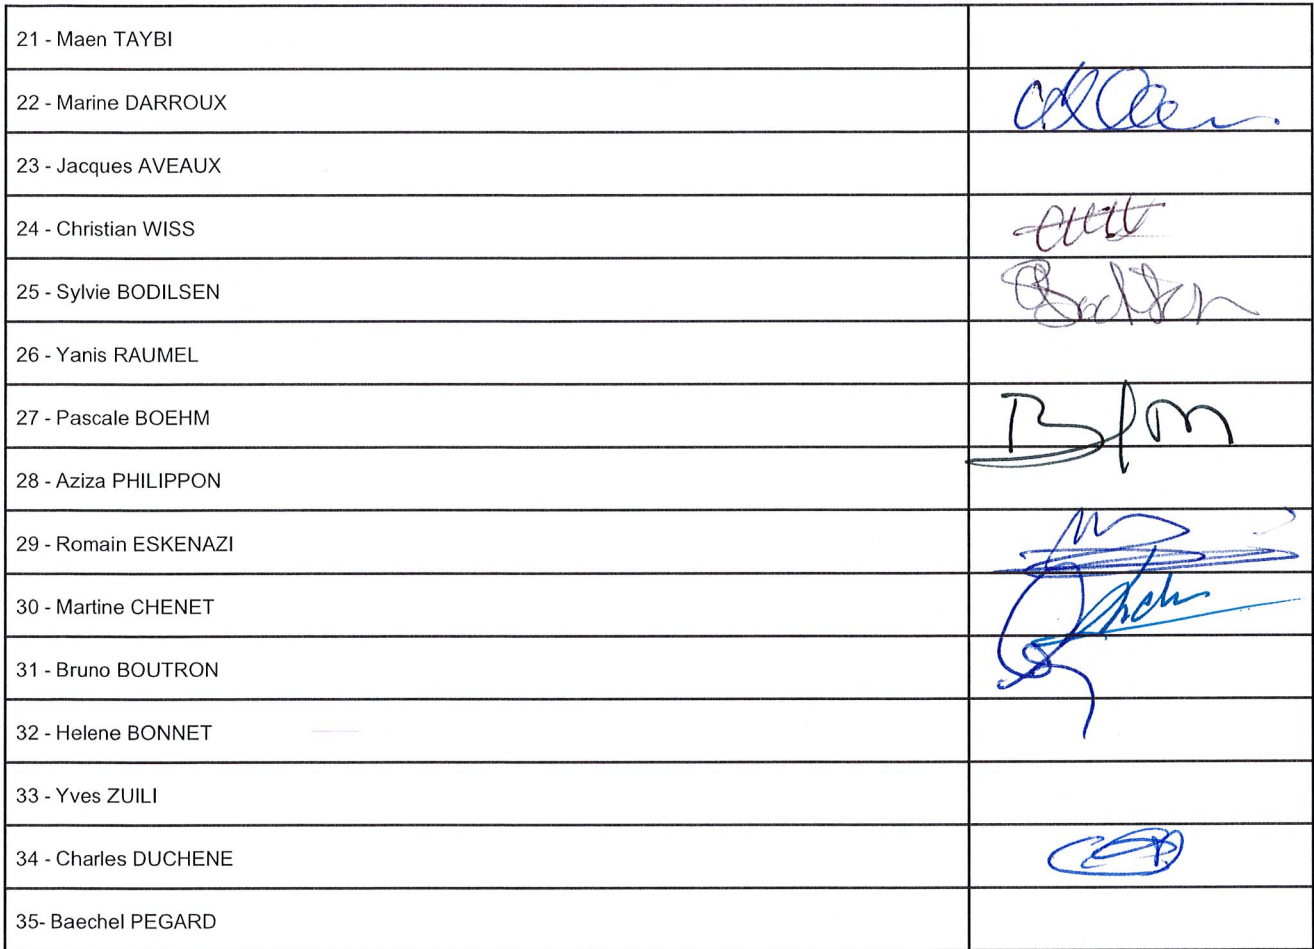 21 - Maen TAYBI
22 - Marine DARROUX
23 - Jacques AVEAUX
24 - Christian WISS
25 - Sylvie BODILSEN
26 - Yanis RAUMEL
27 - Pascale BOEHM
28 - Aziza PHILIPPON
29 - Romain ESKENAZI
30 - Martine CHENET
31 - Bruno BOUTRON
32 - Helene BONNET
33 - Yves ZUILI
34 - Charles DUCHENE
35- Baechel PEGARD